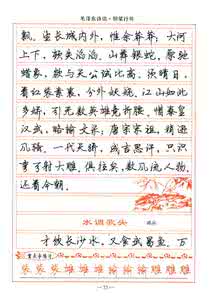 毛泽东诗词·钢笔行书
飘。望长城内外，惟余莽莽；大河
上下，顿失滔滔。山舞银蛇，原驰
蜡象，欲与天公试比高。须晴日，
看红装素裹，分外妖娆。江山如此
多娇，引无数英雄竞折腰。惜秦皇
汉武，略输文采；唐宗宋祖，稍逊
风骚。一代天骄，成吉思汗，只识
弯弓射大雕。俱往矣，数风流人物，
还看今朝。
水调歌头 游泳
才饮长沙水，又食武昌鱼。万
重点字练习